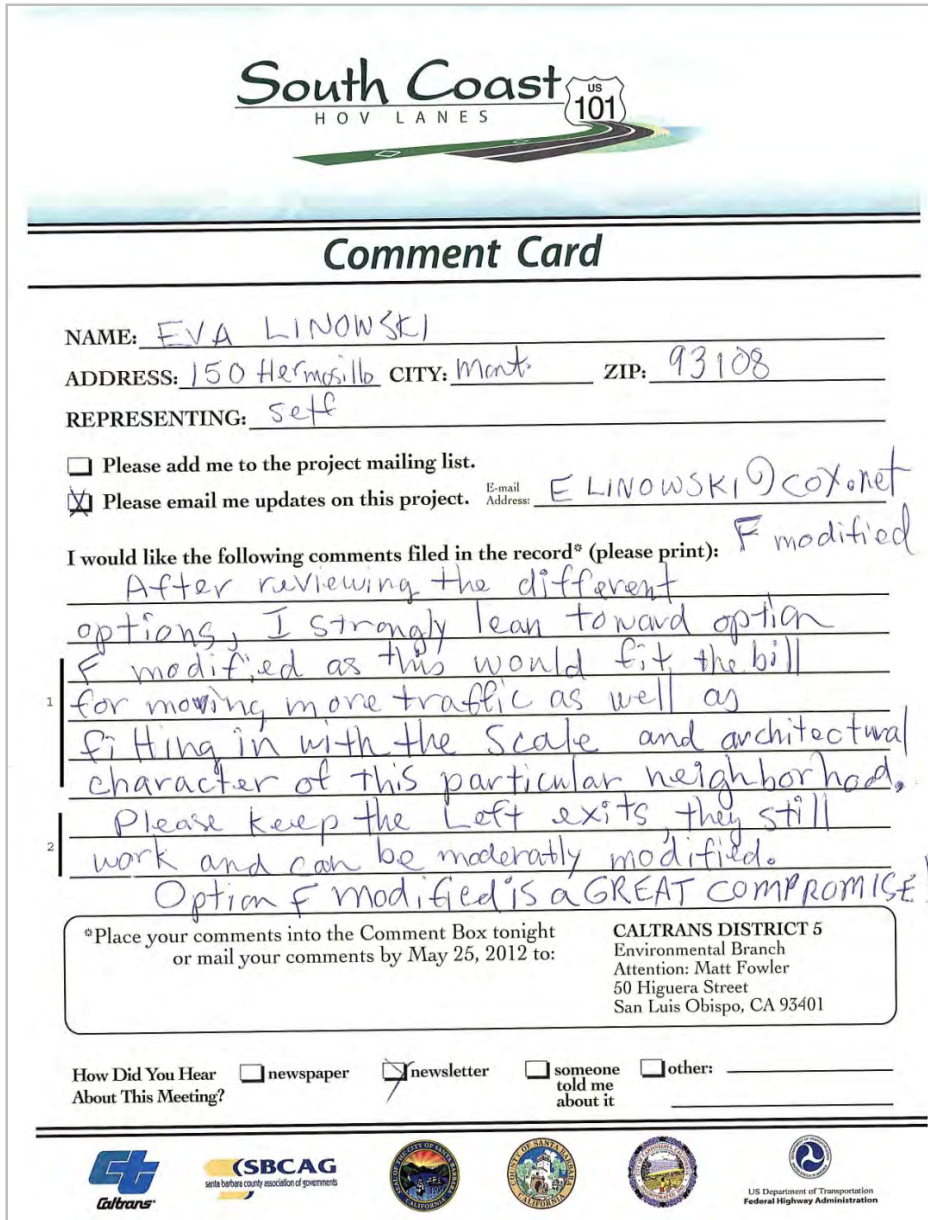 South Coast
HOV LANES
US
101
Comment Card
NAME: EVA LINOWSKI
ADDRESS: 150 Hermosillo CITY: Mont. ZIP: 93108
REPRESENTING: self
Please add me to the project mailing list.
Please email me updates on this project. E-mail Address: ELINOWSKI@cox.net
I would like the following comments filed in the record* (please print): F modified
After reviewing the different
options, I strongly lean toward option
F modified as this would fit the bill
1 for moving more traffic as well as
fitting in with the scale and architectural
character of this particular neighborhood.
Please keep the Left exits, they still
2 work and can be moderatly modified.
Option F modified is a GREAT COMPROMISE!
*Place your comments into the Comment Box tonight
or mail your comments by May 25, 2012 to:
CALTRANS DISTRICT 5
Environmental Branch
Attention: Matt Fowler
50 Higuera Street
San Luis Obispo, CA 93401
How Did You Hear
About This Meeting?
newspaper
newsletter
someone
told me
about it
other:
Caltrans
SBCAG
santa barbara county association of governments
SEAL OF THE CITY OF SANTA BARBARA
CALIFORNIA
COUNTY OF SANTA BARBARA
CALIFORNIA
US Department of Transportation
Federal Highway Administration